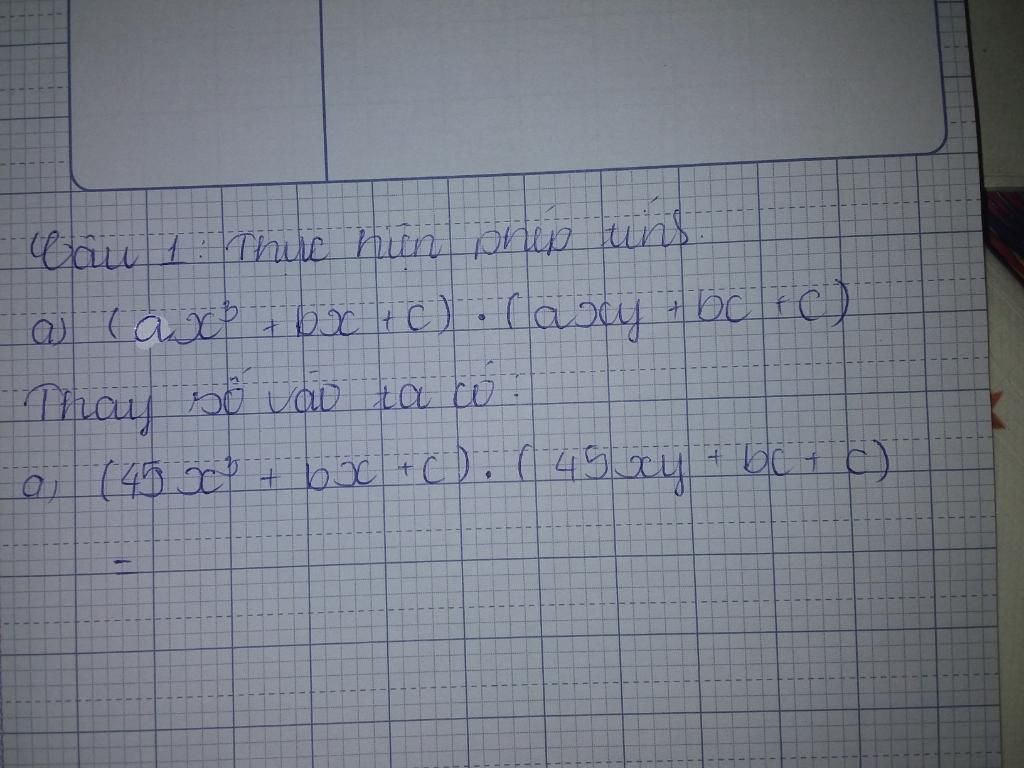 Câu 1: Thực hiện phép tính.
a) (ax³ + bx + c) . (axy + bc + c)
Thay số vào ta có:
a) (45x³ + bx + c) . (45xy + bc + c)
=